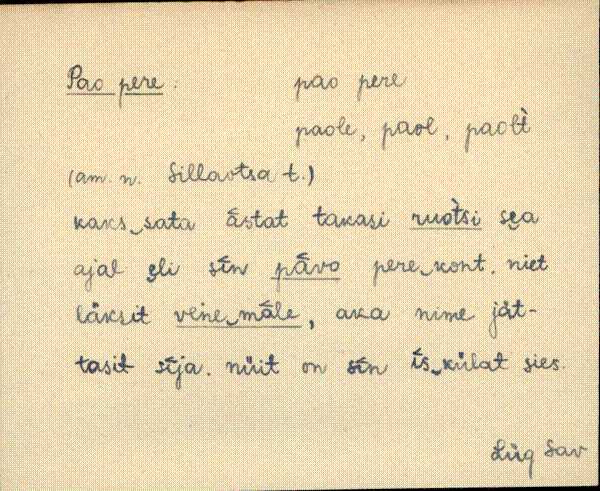 Pao pere :    pao pere
paole, paol, paolt̀
(am. n. Sillaotsa t.)
kaks‿sata ástat takasi ruot̀si sẹa
ajal ẹli sín pávo pere‿kont. niet
läksit veńe‿mále, aka nime jät-
tasit síja. nüit on sín ís‿külat sies.
Lüg Sav